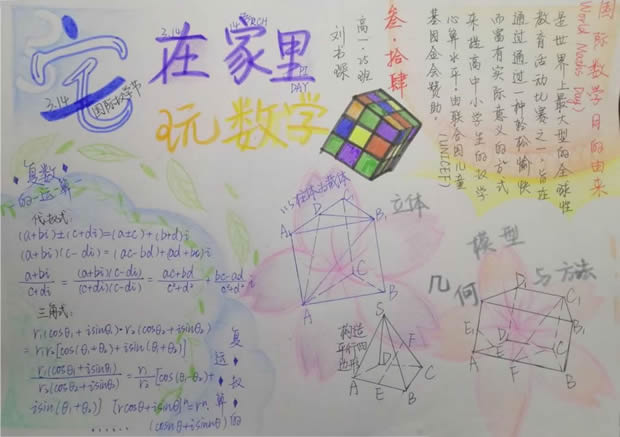 宅
在家里
玩数学
3.14
3.14
国际数学节
DAY
叁·拾肆
国际数学日的由来
(World Maths Day)
是世界上最大型的全球性
教育活动比赛之一,旨在
通过通过一种轻松愉快
而富有实际意义的方式
来提高中小学生的数学
心算水平!由联合国儿童
(UNICEF)
基因金会赞助。
复数
的·运·算
代数式:
(a+bi)±(c+di)=(a±c)+(b±d)i
(a+bi)(c-di)=(ac-bd)+(ad+bc)i
a+bi/c+di = (a+bi)(c-di)/(c+di)(c-di) = ac+bd/c²+d² + bc-ad/c²+d² i
三角式:
r₁(cosθ₁+isinθ₁)·r₂(cosθ₂+isinθ₂)
=r₁r₂[cos(θ₁+θ₂)+isin(θ₁+θ₂)]
r₁(cosθ₁+isinθ₁)/r₂(cosθ₂+isinθ₂) = r₁/r₂[cos(θ₁-θ₂)+
isin(θ₁+θ₂)] [rcosθ+isinθ]ⁿ=rⁿ·
(cosnθ+isinnθ)
......
立体
几何
模型
与方法
A₁
D
B₁
C
A
B
构造
平行四
边形
S
F
D
C
A
E
B
D₁
C₁
E₁
B₁
D
C
A
E
F
B